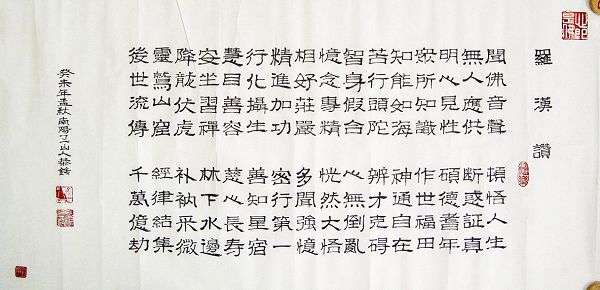 羅漢讚
聞佛音聲 頓悟人生
無人應供 断惑証真
明心見性 碩德耆年
衆所知識 作世福田
知能如海 神通自在
苦行頭陀 辨才克碍
智身假合 心無倒亂
憶念專精 恍然大悟
相好莊嚴 多聞強憶
精進加功 密行第一
行化攝生 善知星宿
慧目善容 慈心長寿
安坐習禪 林下水邊
降龍伏虎 补衲采微
靈鷲山窟 經律結集
後世流傳 千萬億劫
癸未年孟秋南陽寸山人恭錄